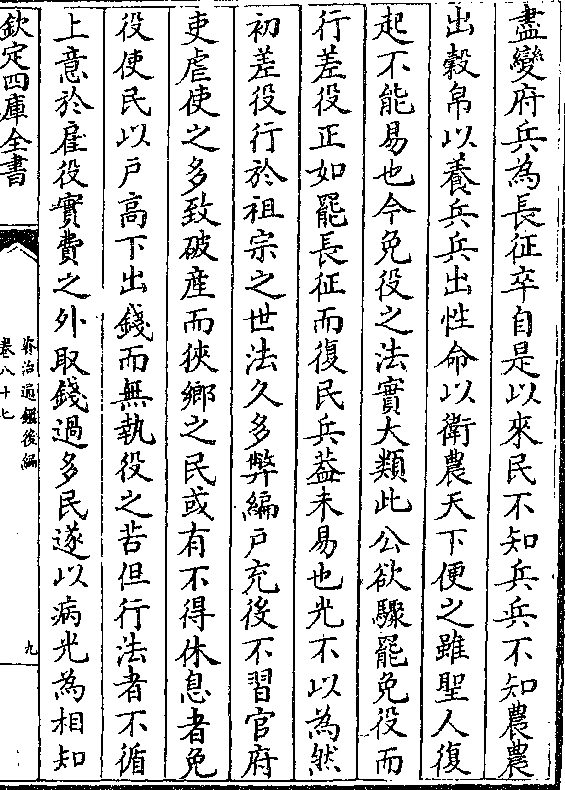 盡變府兵為長征卒自是以來民不知兵兵不知農農
出穀帛以養兵兵出性命以衛農天下便之雖聖人復
起不能易也今免役之法實大類此公欲驟罷免役而
行差役正如罷長征而復民兵葢未易也光不以為然
初差役行於祖宗之世法久多弊編戸充役不習官府
吏虐使之多致破産而狹鄉之民或有不得休息者免
役使民以戸高下出錢而無執役之苦但行法者不循
上意於雇役實費之外取錢過多民遂以病光為相知
欽定四庫全書
資治通鑑後編
卷八十七
九